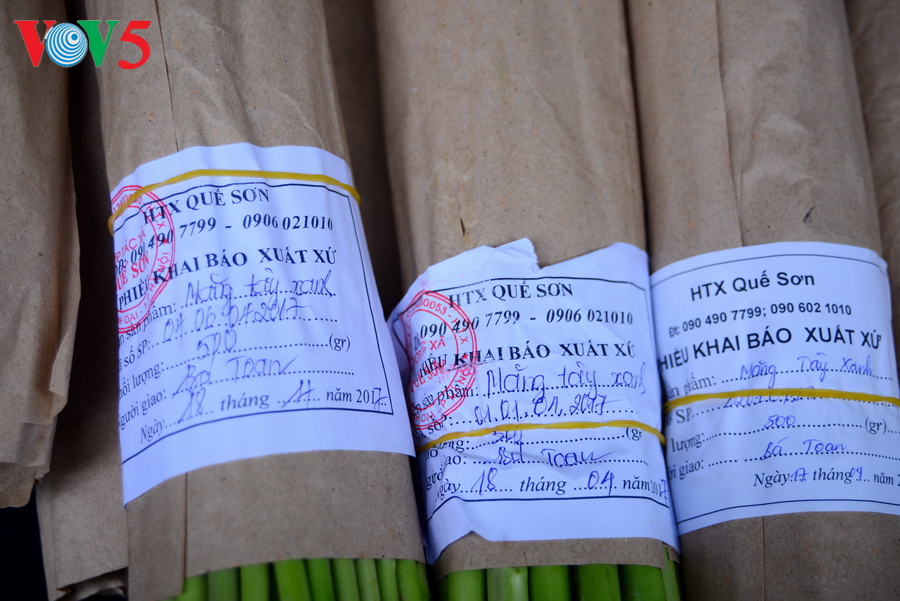 VOV5
HTX QUẾ SƠN
090 490 7799 - 0906 021010
PHIẾU KHAI BÁO XUẤT XỨ
sản phẩm: Măng tây xanh
số SP: 01.06.01.2017
lượng: 500 (gr)
người giao: Bá Toan
Ngày 18 tháng 4 năm 2017
HTX QUẾ SƠN
090 490 7799 - 0906 021010
HIẾU KHAI BÁO XUẤT XỨ
sản phẩm: Măng tây xanh
01.01.01.2017
500 (gr)
giao: Bá Toan
Ngày 18 tháng 04 năm 2017
HTX Quế Sơn
Đt: 090 490 7799; 090 602 1010
HIẾU KHAI BÁO XUẤT XỨ
phẩm: Măng Tây Xanh
SP
lượng: 500 (gr)
giao: Bá Toan
Ngày 17 tháng 04 năm